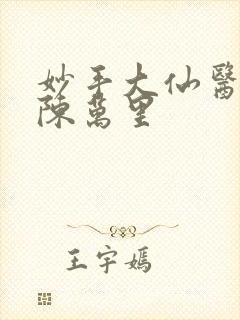 妙手大仙醫
陳萬里
王宇嫣